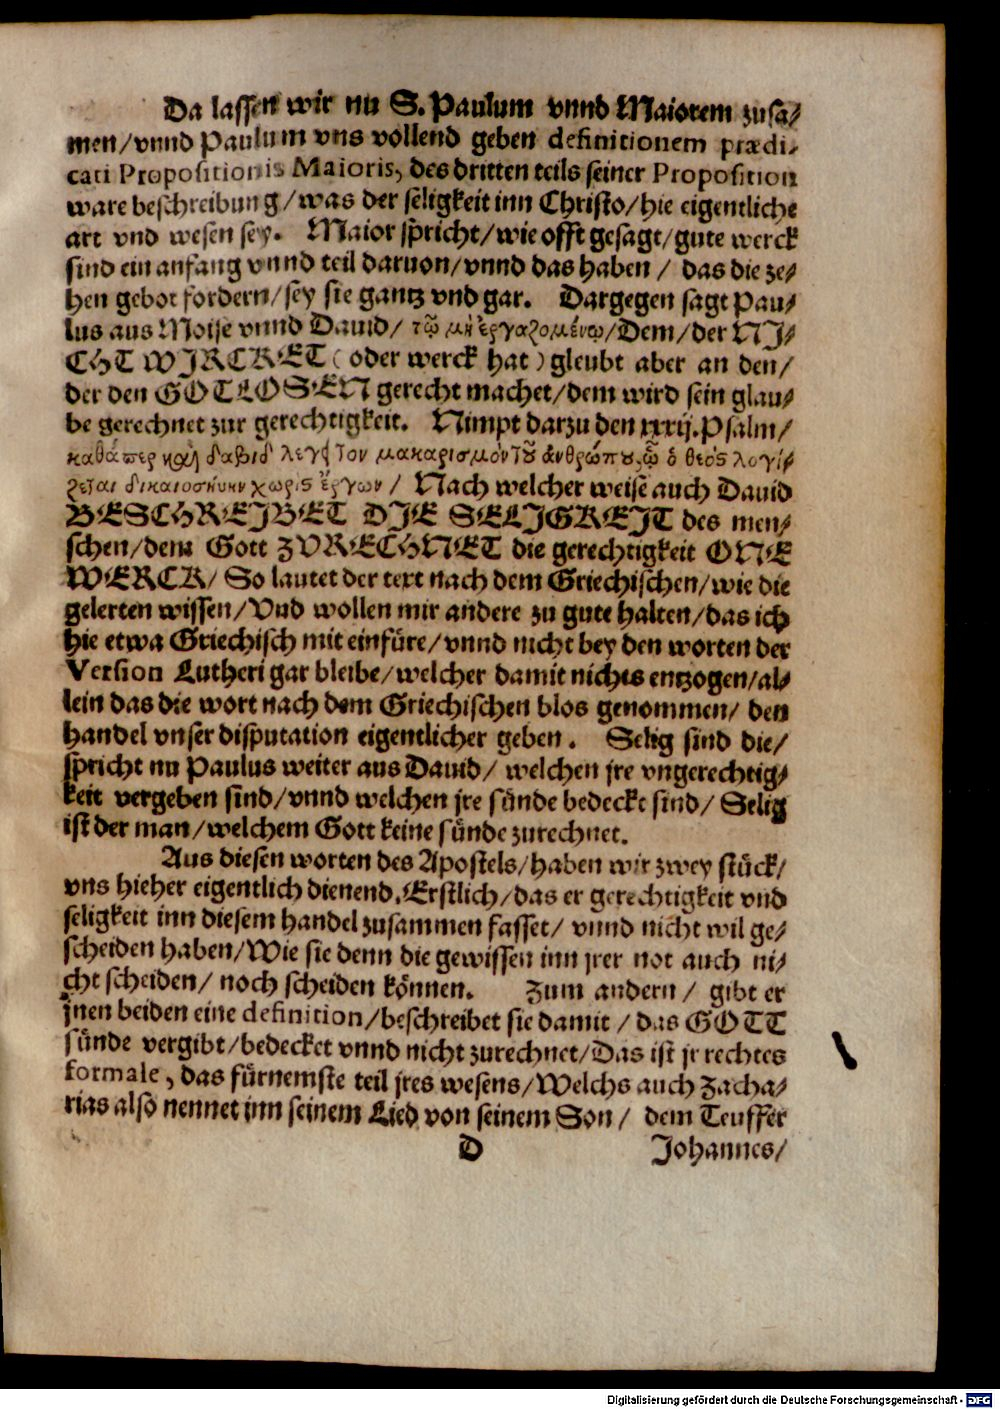 Da lassen wir nu S. Paulum vnnd Maiorem zusa⸗
men/vnnd Paulum vns vollend geben definitionem prædi⸗
cati Propositionis Maioris, des dritten teils seiner Proposition
ware beschreibung/was der seligkeit inn Christo/hie eigentliche
art vnd wesen sey. Maior spricht/wie offt gesagt/gute werck
sind ein anfang vnnd teil daruon/vnnd das haben / das die ze⸗
hen gebot fordern/sey sie gantz vnd gar. Dargegen sagt Pau⸗
lus aus Moise vnnd Dauid/ τῷ μὴ ἐργαζομένῳ/Dem/der NI⸗
CHT WIRCKET ( oder werck hat ) gleubt aber an den/
der den GOTLOSEN gerecht machet/dem wird sein glau⸗
be gerechnet zur gerechtigkeit. Nimpt darzu den xxxij. Psalm/
καθάπερ καὶ δαβὶδ λέγει τὸν μακαρισμὸν τοῦ ἀνθρώπου, ᾧ ὁ θεὸς λογί⸗
ζεται δικαιοσύνην χωρὶς ἔργων / Nach welcher weise auch Dauid
BESCHREIBET DIE SELIGKEIT des men⸗
schen/dem Gott ZVRECHNET die gerechtigkeit ONE
WERCK/ So lautet der text nach dem Griechischen/wie die
gelerten wissen/Vnd wollen mir andere zu gute halten/das ich
hie etwa Griechisch mit einfüre/vnnd nicht bey den worten der
Version Lutheri gar bleibe/welcher damit nichts entzogen/al⸗
lein das die wort nach dem Griechischen blos genommen/ den
handel vnser disputation eigentlicher geben. Selig sind die/
spricht nu Paulus weiter aus Dauid/ welchen jre vngerechtig⸗
keit vergeben sind/vnnd welchen jre sünde bedeckt sind/ Selig
ist der man/welchem Gott keine sünde zurechnet.
Aus diesen worten des Apostels/haben wir zwey stück/
vns hieher eigentlich dienend. Erstlich/das er gerechtigkeit vnd
seligkeit inn diesem handel zusammen fasset/ vnnd nicht wil ge⸗
scheiden haben/Wie sie denn die gewissen inn jrer not auch ni⸗
cht scheiden/ noch scheiden können. Zum andern/ gibt er
jnen beiden eine definition/beschreibet sie damit / das GOTT
sünde vergibt/bedecket vnnd nicht zurechnet/Das ist jr rechtes
formale, das fürnemste teil jres wesens/Welchs auch Zacha⸗
rias also nennet inn seinem Lied von seinem Son / dem Teuffer
D Johannes/
Digitalisierung gefördert durch die Deutsche Forschungsgemeinschaft - DFG